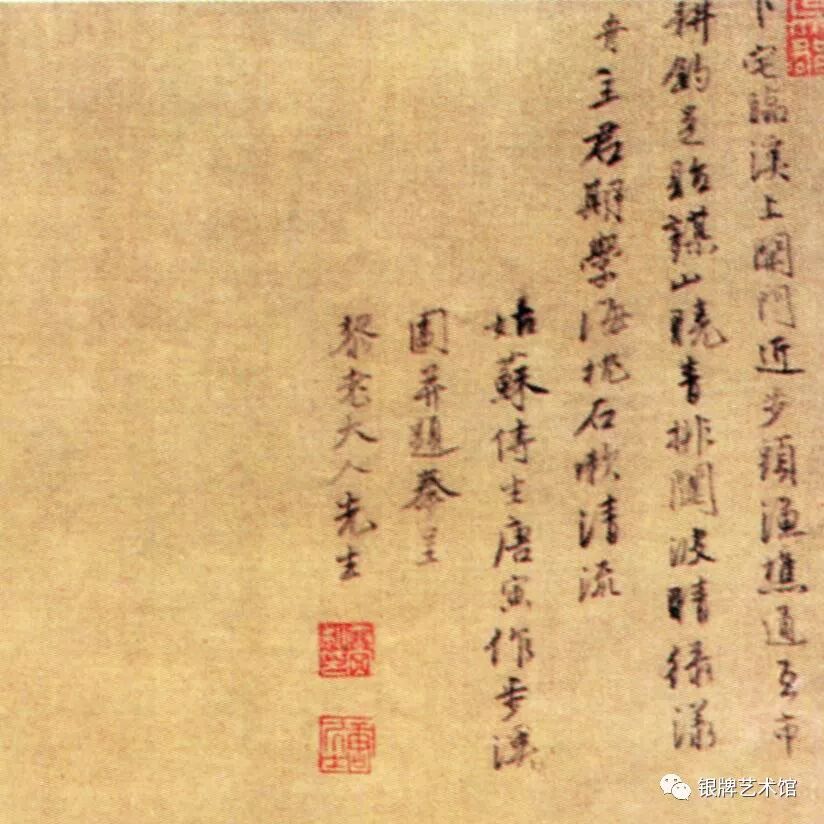 卜宅臨溪上開門近步頭漁樵通互市
耕釣足貽謀山曉青排闥波晴綠漾
舟主君期學海枕石漱清流
姑蘇侍生唐寅作步溪
圖并題奉呈
黎老大人先生
银牌艺术馆